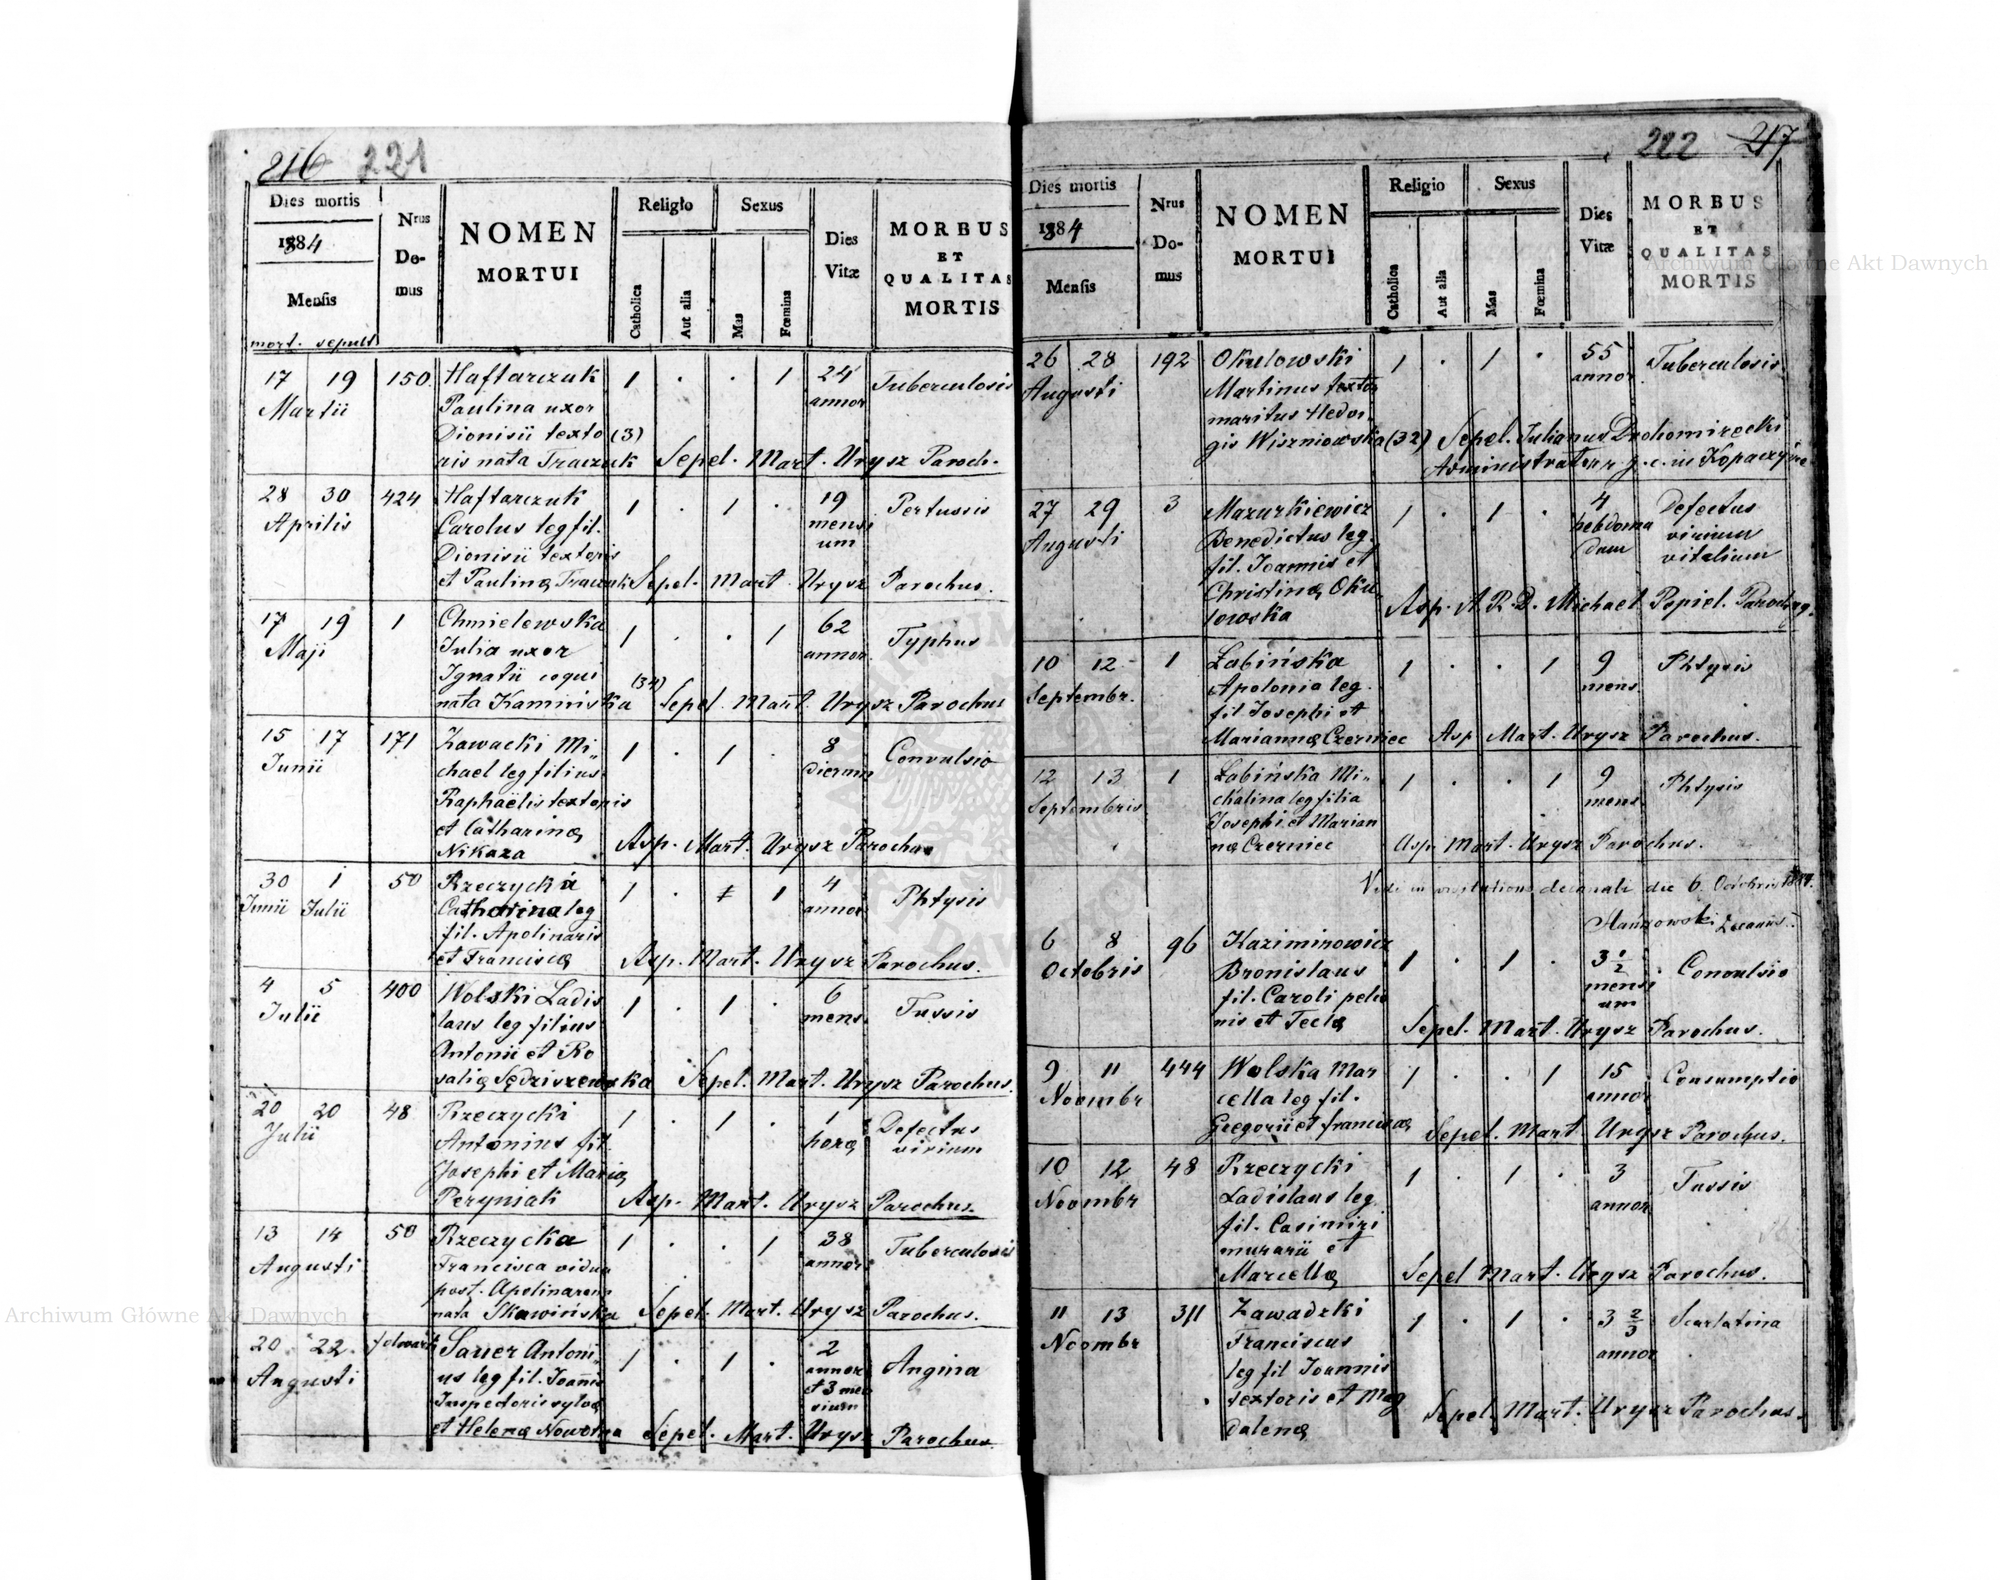 216 221
Dies mortis
1884
Mensis
mort. sepult
Nrus
Do-
mus
NOMEN
MORTUI
Religio
Catholica
Aut alia
Sexus
Mas
Fœmina
Dies
Vitæ
MORBUS
ET
QUALITAS
MORTIS
17 19 150 Haftarczuk 1 . . 1 24 Tuberculosis
Martii Paulina uxor annor
Dionisii texto (3)
ris nata Traczuk Sepel. Mart. Urysz Paroch.
28 30 424 Haftarczuk 1 . 1 . 19 Pertussis
Aprilis Carolus leg fil. mensi
Dionisii textoris um
et Paulinæ Traczuk Sepel. Mart Urysz Parochus.
17 19 1 Chmielewska 1 . . 1 62 Typhus
Maji Julia uxor annor
Ignatii coqui (34)
nata Kamińska Sepel. Mart. Urysz Parochus
15 17 171 Zawacki Mi 1 . 1 . 8 Convulsio
Junii chael leg filius dierum
Raphaëlis textoris
et Catharinæ
Nikaza Asp. Mart. Urysz Parochus
30 1 50 Rzeczycka 1 . 1 4 Phtysis
Junii Julii Catharina leg annor
fil. Apolinaris
et Franciscæ Asp. Mart. Urysz Parochus.
4 5 400 Wolski Ladis 1 . 1 . 6 Tussis
Julii laus leg filius mens.
Antonii et Ro
saliæ Sędziszewska Sepel. Mart. Urysz Parochus.
20 20 48 Rzeczycki 1 . 1 . 1 Defectus
Julii Antonius fil. horæ virium
Josephi et Mariæ
Peryniak Asp. Mart. Urysz Parochus.
13 14 50 Rzeczycka 1 . . 1 38 Tuberculosis
Augusti Francisca vidua annor
post. Apolinarem
nata Skawińska Sepel. Mart. Urysz Parochus.
20 22 folwark Sauer Antoni- 1 . 1 . 2 Angina
Augusti us leg fil. Joannis annor
Inspectoris sylvæ et 3 men
et Helenæ Nowotna sium Sepel. Mart. Urysz Parochus
222 217
Dies mortis
1884
Mensis
Nrus
Do-
mus
NOMEN
MORTUI
Religio
Catholica
Aut alia
Sexus
Mas
Fœmina
Dies
Vitæ
MORBUS
ET
QUALITAS
MORTIS
26 28 192 Okulowski 1 . 1 . 55 Tuberculosis
Augusti Martinus textor annor
maritus Hedvi-
gis Wiszniowska (32) Sepel. Julianus Drohomirecki
Administrator g. c. in Kopaczyńce
27 29 3 Mazurkiewicz 1 . 1 . 4 Defectus
Augusti Benedictus leg. hebdoma virium
fil. Joannis et dum vitalium
Christinæ Oku
lowska Asp. A. R. D. Michael Popiel Paroch g.
10 12 1 Łabińska 1 . . 1 9 Phtysis
Septembr. Apolonia leg. mens.
fil Josephi et
Mariannæ Czerniec Asp Mart. Urysz Parochus.
12 13 1 Łabińska Mi- 1 . . 1 9 Phtysis
Septembris chalina leg filia mens.
Josephi et Marian
næ Czerniec Asp. Mart. Urysz Parochus.
Vidi in visitatione decanali die 6 Octobris 1884.
Decanus
6 8 96 Kazimirowicz 1 . 1 . 3 1/2 Convulsio
Octobris Bronislaus mensi
fil. Caroli pelio um
nis et Teclæ Sepel. Mart. Urysz Parochus.
9 11 444 Wolska Mar 1 . . 1 15 Consumptio
Novmbr cella leg fil. annor
Gregorii et franciscæ Sepel. Mart. Urysz Parochus.
10 12 48 Rzeczycki 1 . 1 . 3 Tussis
Novmbr Ladislaus leg. annor
fil. Casimiri
murarii et
Marcellæ Sepel Mart. Urysz Parochus.
11 13 311 Zawadzki 1 . 1 . 3 2/3 Scarlatina
Novmbr Franciscus annor
leg fil Joannis
textoris et Mag
dalenæ Sepel. Mart. Urysz Parochus.
Archiwum Główne Akt Dawnych
Archiwum Główne Akt Dawnych